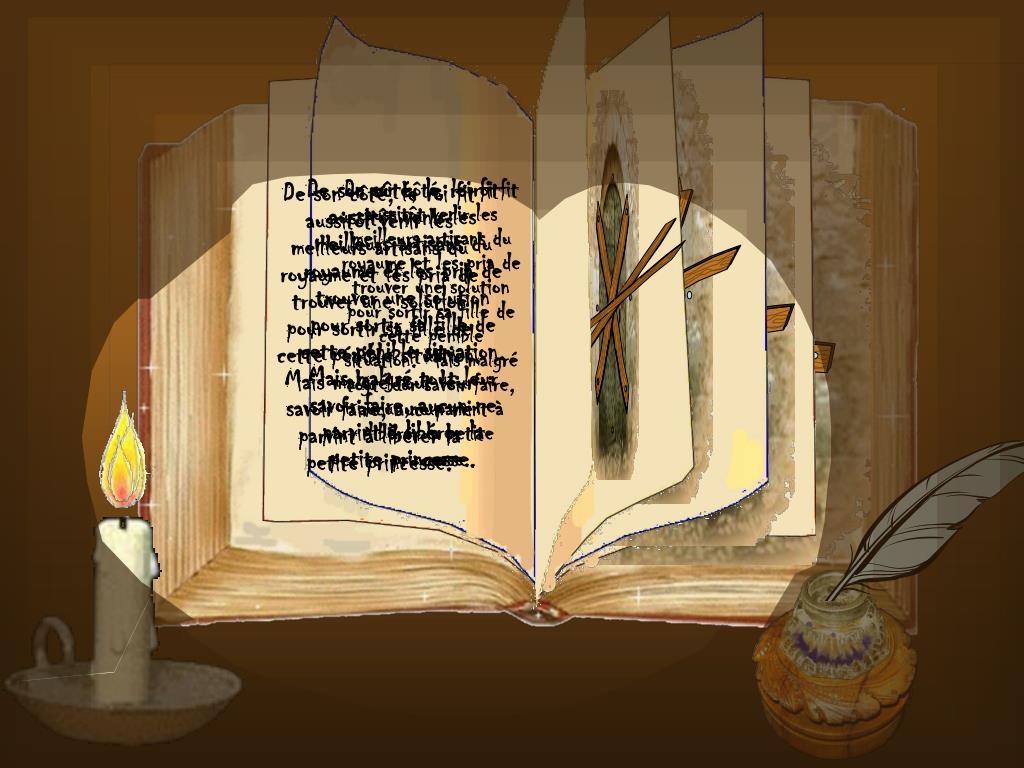 De son côté, le roi fit
aussitôt venir les
meilleurs artisans du
royaume et les pria de
trouver une solution
pour sortir sa fille de
cette pénible situation.
Mais malgré tout leur
savoir faire, aucun ne
parvint à libérer la
petite princesse...